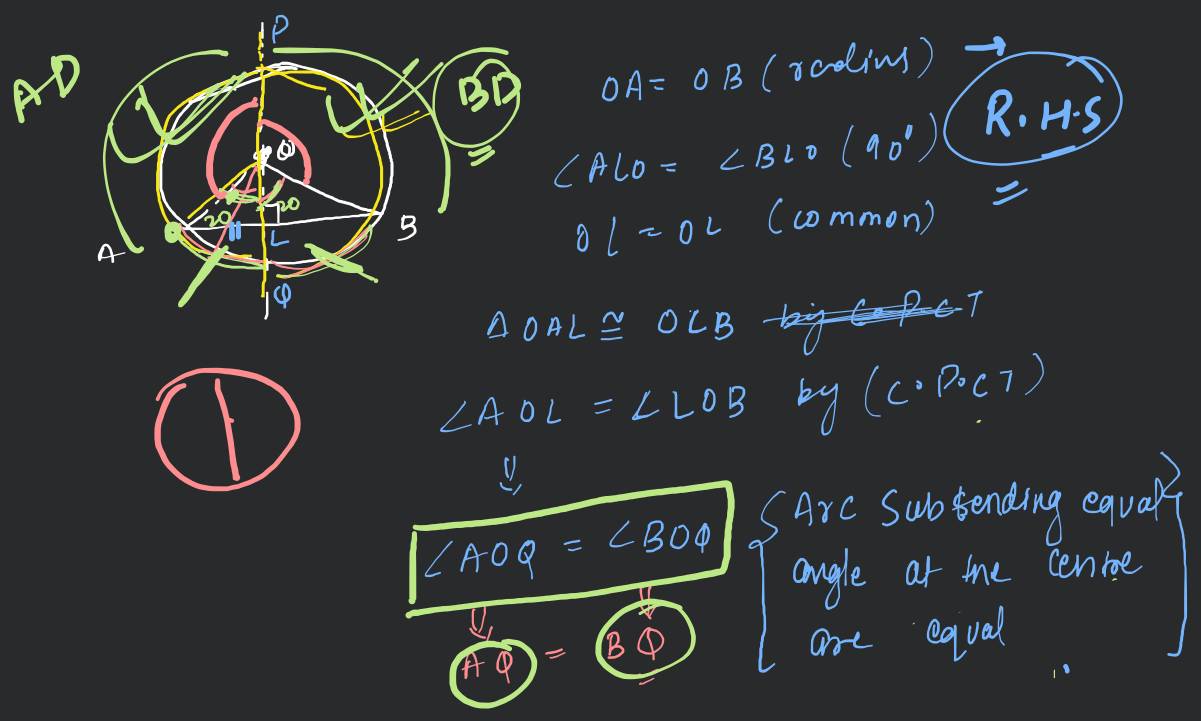 P
AD
BD
O
20
20
A
L
B
Q
OA = OB (radius) →
R.H.S
∠ALO = ∠BLO (90°)
OL = OL (common)
Δ OAL ≅ OLB by C.P.C.T
∠AOL = ∠LOB by (C.P.C.T)
⇓
∠AOQ = ∠BOQ
⇓ ⇓
AQ = BQ
{ Arc Subtending equal
angle at the centre
are equal }